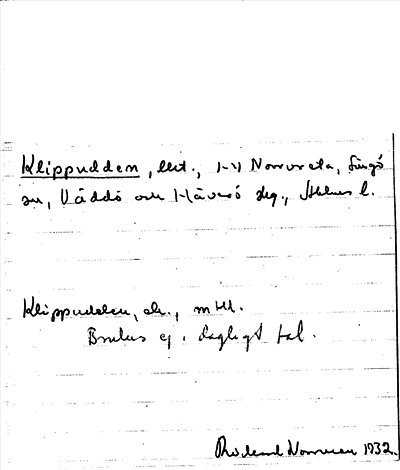 Klippudden, [...], 1-4 Norrveta, Singö
sn, Väddö och Häverö skg., Sthlms l.
Klippudden, ek., m fl.
Brukas ej i dagligt tal.
Roland Norrman 1932.